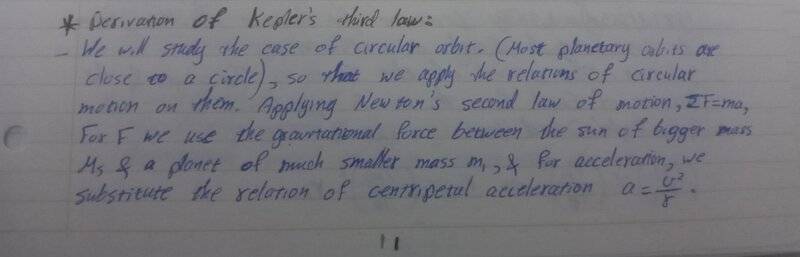 * Derivation of Kepler's third law:
- We will study the case of circular orbit. (Most planetary orbits are
close to a circle), so that we apply the relations of circular
motion on them. Applying Newton's second law of motion, ΣF=ma,
For F we use the gravitational force between the sun of bigger mass
Ms & a planet of much smaller mass m₁, & for acceleration, we
substitute the relation of centripetal acceleration a = v²/r.
11